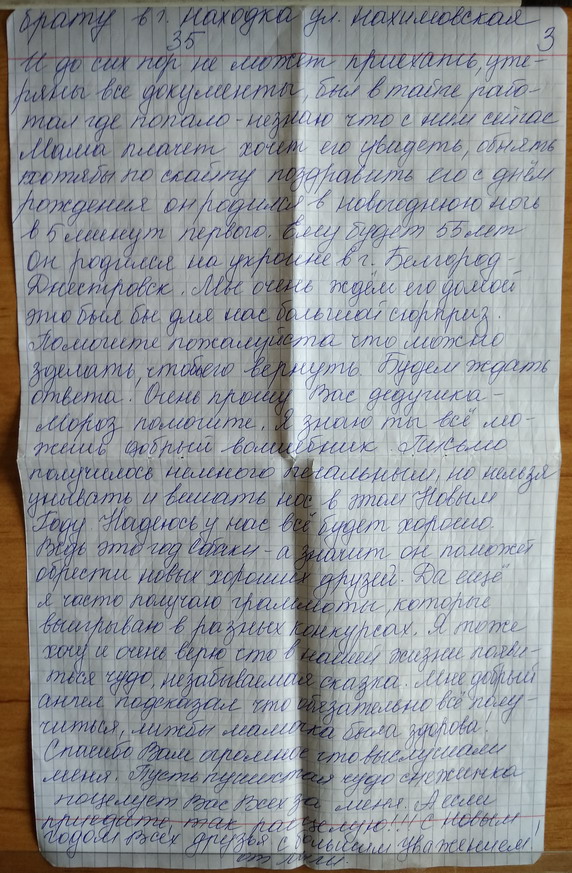 брату в г. Находка ул. Нахимовская
35 3
И до сих пор не может приехать, уте-
ряны все документы, был в тайге рабо-
тал где попало - незнаю что с ним сейчас
Мама плачет хочет его увидеть, обнять
хотябы по скайпу поздравить его с днём
рождения он родился в новогоднюю ночь
в 5 минут первого. Ему будет 55 лет
Он родился на украине в г. Белгород-
Днестровск. Мы очень ждём его домой
это был бы для нас большой сюрприз.
Помогите пожалуйста что можно
зделать, чтобы его вернуть. Будем ждать
ответа! Очень прошу Вас дедушка-
мороз помогите. Я знаю ты всё мо-
жешь добрый волшебник Письмо
получилось немного печальным, но нельзя
унывать и вешать нос в этом Новым
Году. Надеюсь у нас всё будет хорошо.
Ведь это год Собаки - а значит он поможет
обрести новых хороших друзей. Да ещё
я часто получаю граммоты, которые
выигрываю в разных конкурсах. Я тоже
хочу и очень верю что в нашей жизни появи-
тся чудо, незабываемая сказка. Мне добрый
ангел подсказал что обязательно всё полу-
читься, лижбы мамочка была здорова!
Спасибо Вам огромное что выслушали
меня. Пусть пушистая чудо снежинка
поцелует Вас Всех за меня. А если
приедите, так расцелую!!! С новым
годом Всех друзья с большим уважением!
от